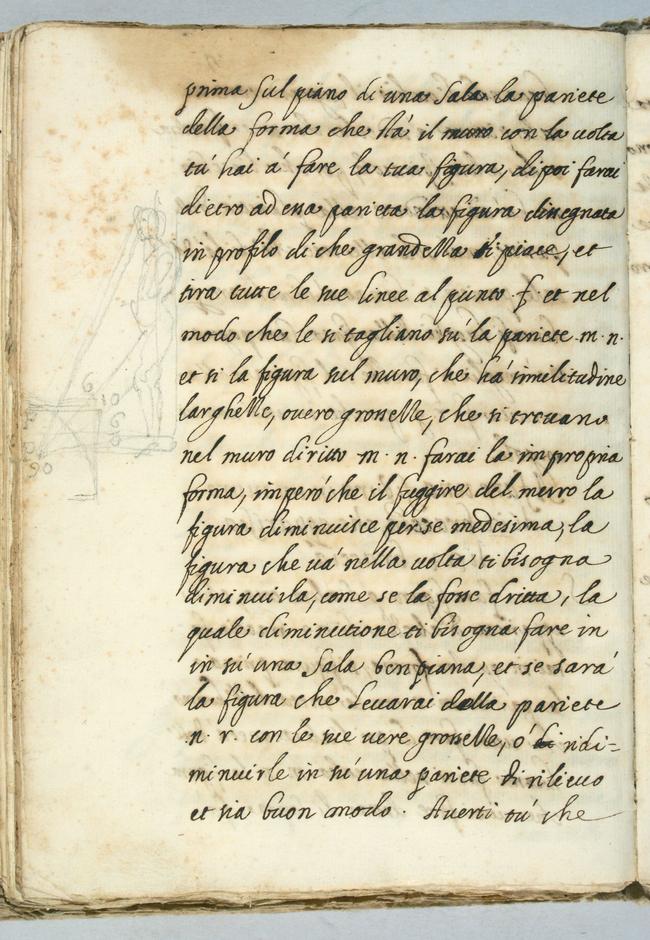 prima sul piano di una Sala la pariete
della forma che stà il muro con la volta
tù hai á fare la tua figura, dipoi farai
dietro ad essa parieta la figura disegnata
in profilo di che grandezza ti piace, et
tira tutte le sue linee al punto .f. et nel
modo che le si tagliano sù la pariete .m. n.
et si la figura sul muro, che há similitudine
larghezze, overo grossezze, che si trovano
nel muro diritto .m. n. farai la impropria
forma, imperó che il fuggire del muro la
figura diminuisce per se medesima, la
figura che uá nella volta ti bisogna
diminuirla, come se la fosse dritta, la
quale diminutione ti bisogna fare in
in sù una Sala ben piana, et se sará
la figura che Levarai della pariete
.n. r. con le sue vere grossezze, ó di ridi=
minuirle in sù una pariete di rilievo
et sia buon modo. Averti tú che
6
10
6
90